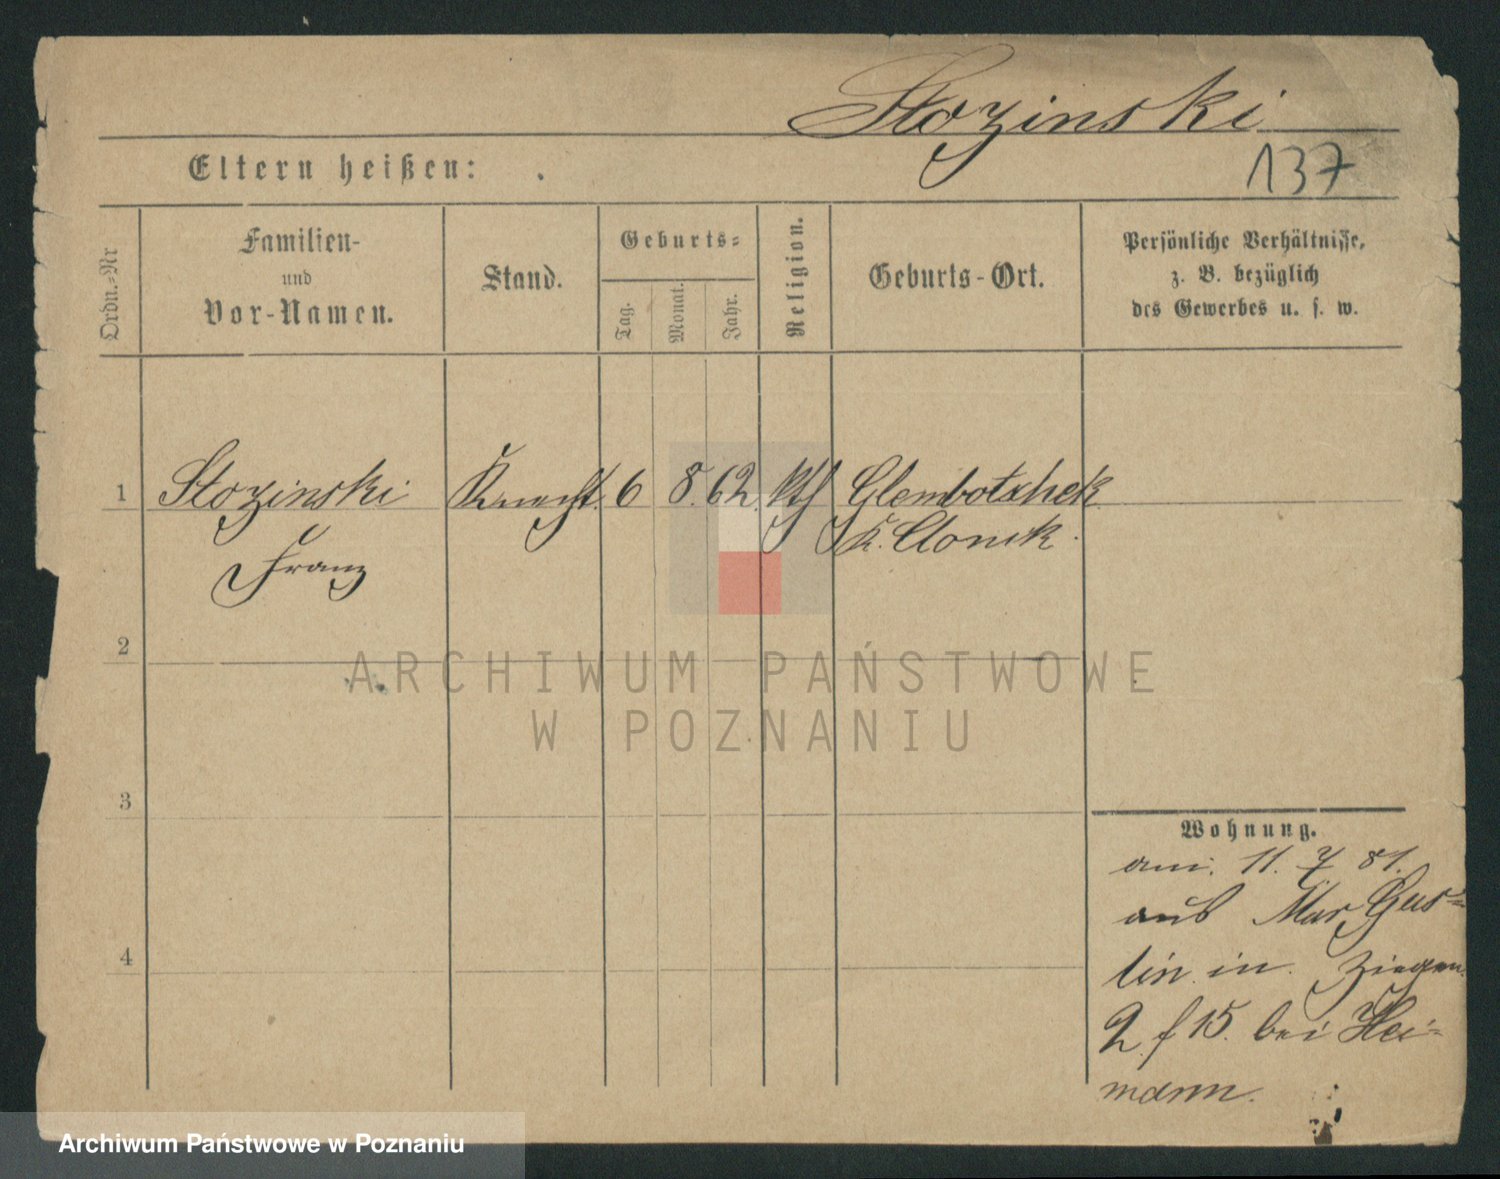 Stozinski
137
Eltern heißen:
Ordn.-Nr
Familien-
und
Vor-Namen.
Stand.
Geburts-
Tag.
Monat.
Jahr.
Religion.
Geburts-Ort.
Persönliche Verhältnisse,
z. B. bezüglich
des Gewerbes u. s. w.
1 Stozinski Knecht. 6 8. 62. kth
Franz
K.
2
3
4
Wohnung.
am. 11. 7 81.
aus Mar Gus-
tin in. Ziegen
2 f 15. bei Hei-
mann.
ARCHIWUM PAŃSTWOWE
W POZNANIU
Archiwum Państwowe w Poznaniu